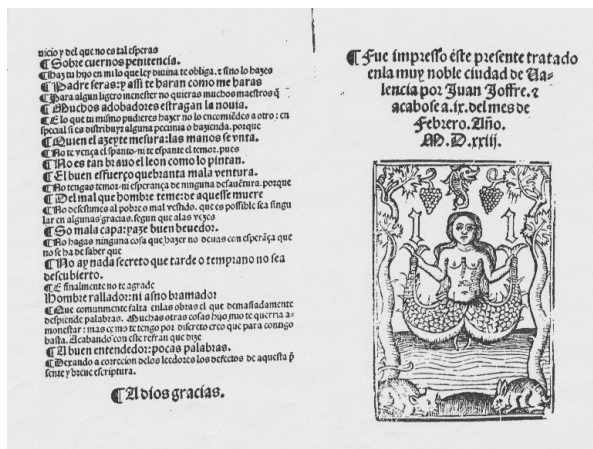 uicio y del que no es tal esperas
¶Sobre cuernos penitencia.
¶Haz tu hijo en mi lo que ley diuina te obliga. ⁊ si no lo hazes
¶Padre seras: y assi te haran como me haras
¶Para algun ligero menester no quieras muchos maestros q̃
¶Muchos adobadores estragan la nouia.
¶E lo que tu mismo pudieres hazer no lo encomiẽdes a otro: en
special si ea distribuyr alguna pecunia o hazienda. porque
¶Quien el azeyte mesura: las manos se vnta.
¶No te vẽça el spanto: ni te espante el temor. pues
¶No es tan brauo el leon como lo pintan.
¶El buen esfuerço quebranta mala ventura.
¶No tengas temor: ni esperança de ninguna desauẽtura. porque
¶Del mal que hombre teme: de aquesse muere
¶No desestimes al pobre o mal vestido. que es possible sea singu
lar en algunas gracias. segun que alas vezes
¶So mala capa: yaze buen beuedor.
¶No hagas ninguna cosa que hazer no deuas con esperãça que
no se ha de saber que
¶No ay nada secreto que tarde o temprano no sea
descubierto.
¶E finalmente no te agrade
Hombre rallador: ni asno bramador
¶Que comunmente falta enlas obras el que demasiadamente
despiende palabras. Muchas otras cosas hijo mio te querria a-
monestar: mas como te tengo por discreto creo que para contigo
basta. Acabando con este refran que dize
¶A buen entendedor: pocas palabras.
¶Dexando a correcion delos lectores los defectos de aquesta p̃
sente y breue escriptura.
¶A dios gracias.
¶Fue impresso ẽste presente tratado
enla muy noble ciudad de Ua-
lencia por Juan Joffre. ⁊
acabose a. ix. del mes de
Febrero. Año.
M. D. xxiij.
I I